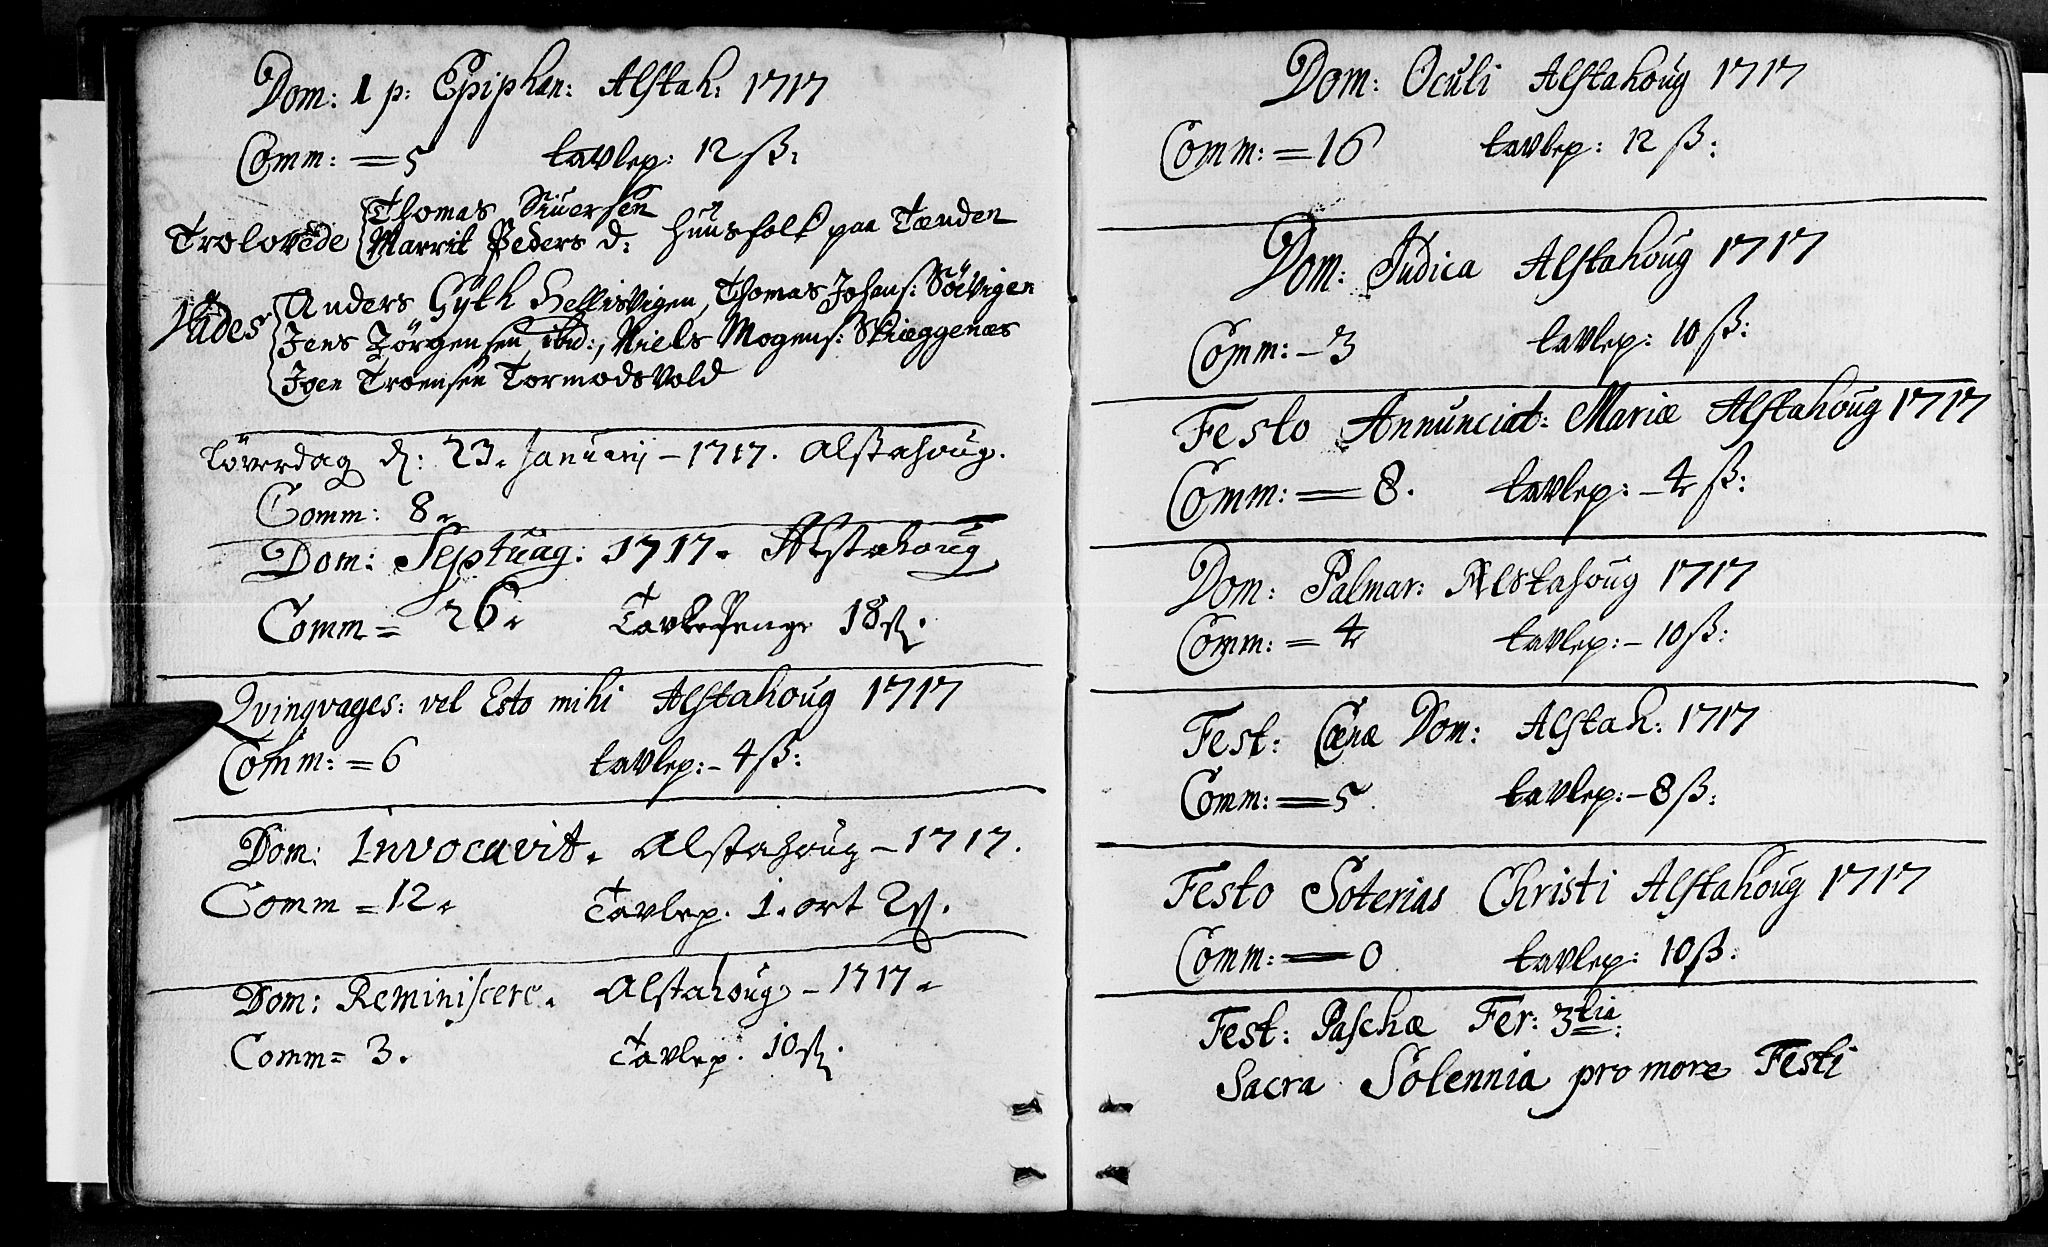 Dom: 1 p: Epiphan: Alstah: 1717
Comm: = 5 tavlep: 12 ß:
Trolovede Thomas Siuersen
Marrit Peders d: huusfolk paa Tænden
Vades Anders Gyth Hellisvigen, Thomas Johans: Söevigen
Jens Jörgensen ibid:, Niels Mogens: Skiæggenæs
Joen Troensen Tormodsvold
Löverdag d: 23. Januarij - 1717. Alstahoug.
Comm: 8.
Dom: Septuag: 1717. Alstahoug
Comm = 26. TavlePenge 18 ß.
Qvinqvages: vel Esto mihi Alstahoug 1717
Comm: = 6 tavlep: - 4 ß:
Dom: Invocavit. Alstahoug - 1717.
Comm = 12. Tavlep. 1. ort 2 ß.
Dom: Reminiscere. Alstahoug - 1717.
Comm = 3. Tavlep. 10 ß.
Dom: Oculi Alstahoug 1717
Comm: = 16 tavlep: 12 ß:
Dom: Judica Alstahoug 1717
Comm: - 3 tavlep: 10 ß:
Festo Annunciat: Mariæ Alstahoug 1717
Comm: = 8. tavlep: - 4 ß:
Dom: Palmar: Alstahoug 1717
Comm: = 4 tavlep: - 10 ß:
Fest: Cœnæ Dom: Alstah: 1717
Comm: = 5. tavlep: - 8 ß:
Festo Soterias Christi Alstahoug 1717
Comm: = 0 tavlep: 10 ß:
Fest: Paschæ Fer: 3tia:
Sacra Solennia pro more Festi